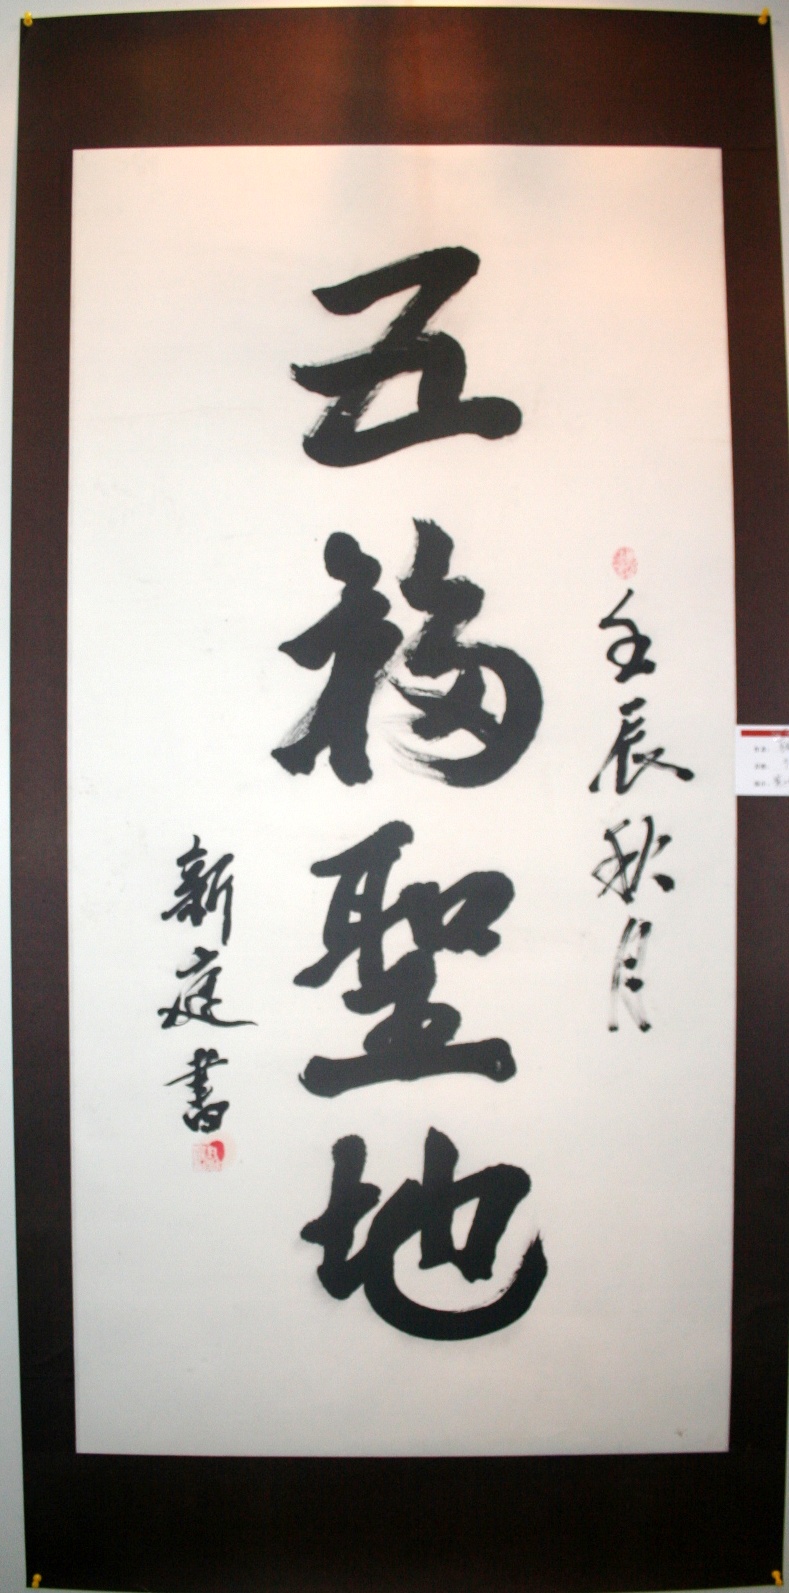 壬辰秋月
五福聖地
新庭書